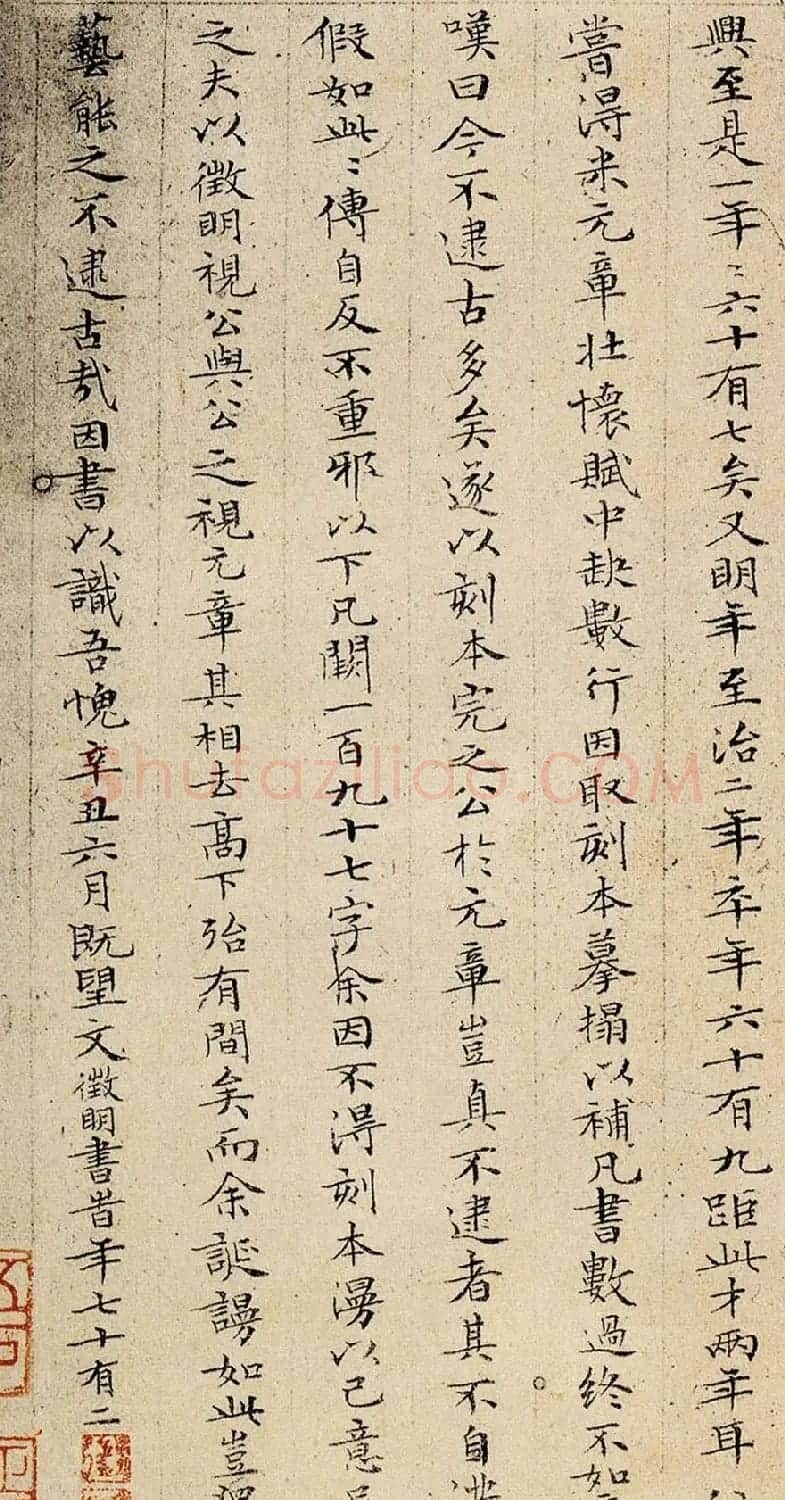 興至是一年〻六十有七矣又明年至治二年卒年六十有九距此才兩年耳
嘗得米元章壯懷賦中缺數行因取刻本摹搨以補凡書數過終不如
嘆曰今不逮古多矣遂以刻本完之公於元章豈真不逮者其不自
假如此〻傳自反不重邪以下凡闕一百九十七字余因不得刻本漫以己意
之夫以徵明視公與公之視元章其相去高下殆有間矣而余誕謾如此豈
藝能之不逮古哉因書以識吾愧辛丑六月既望文徵明書昔年七十有二
shufaziliao.COM